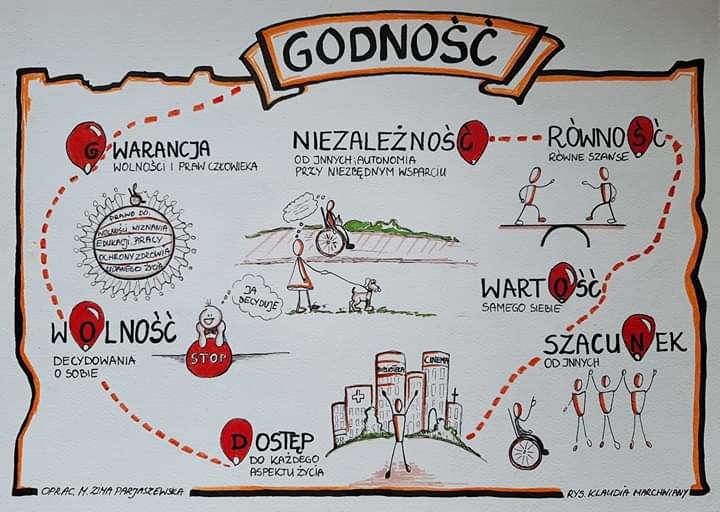 GODNOŚĆ
GWARANCJA
WOLNOŚCI I PRAW CZŁOWIEKA
NIEZALEŻNOŚĆ
OD INNYCH; AUTONOMIA
PRZY NIEZBĘDNYM WSPARCIU
RÓWNOŚĆ
RÓWNE SZANSE
PRAWO DO:
WOLNOŚCI, WYZNANIA
EDUKACJI, PRACY
OCHRONY ZDROWIA
UDANEGO ŻYCIA
WARTOŚĆ
SAMEGO SIEBIE
JA
DECYDUJĘ
WOLNOŚĆ
DECYDOWANIA
O SOBIE
STOP
SZACUNEK
OD INNYCH
BIBLIOTEKA
CINEMA
DOSTĘP
DO KAŻDEGO
ASPEKTU ŻYCIA
OPRAC. M. ZIMA PARJASZEWSKA
RYS. KLAUDIA MARCHWIANY